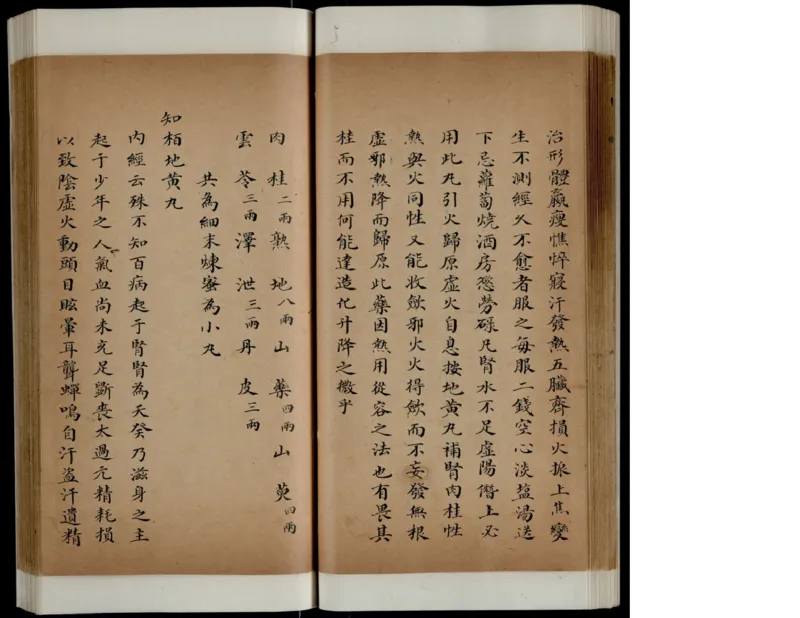 治形體羸瘦憔悴寢汗發熱五臟齊損火拺上焦變
生不測經久不愈者服之每服二錢空心淡塩湯送
下忌蘿蔔燒酒房慾勞碌凡腎水不足虛陽僭上必
用此丸引火歸原虛火自息按地黃丸補腎肉桂性
熱與火同性又能收歛邪火火得歛而不妄發無根
虛邪熱降而歸原此藥因熱用從容之法也有畏其
桂而不用何能達造化升降之微乎
肉桂二兩熟地八兩山藥四兩山萸四兩
雲苓三兩澤泄三兩丹皮三兩
共為細末煉蜜為小丸
知柏地黃丸
內經云殊不知百病起于腎腎為天癸乃滋身之主
起于少年之人氣血尚未充足斵喪太過元精耗損
以致陰虛火動頭目眩暈耳聾蟬鳴自汗盜汗遺精